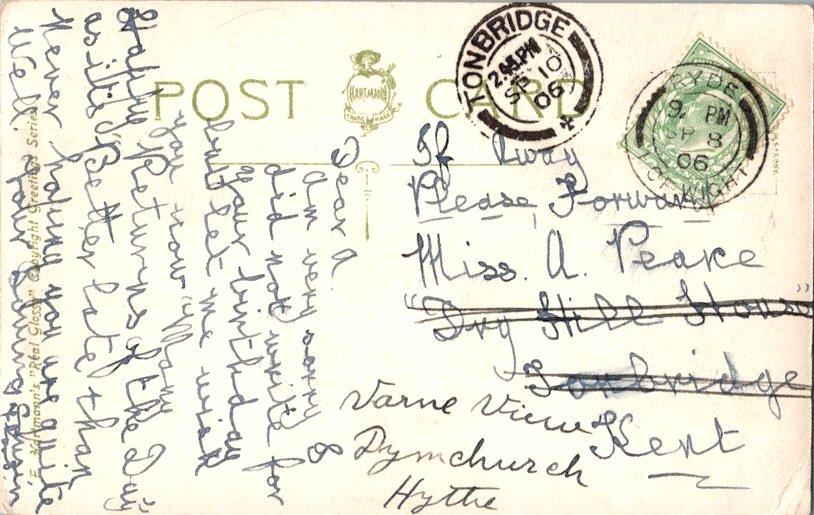 POST CARD
HARTMANN
TRADE MARK
TONBRIDGE
2.45PM
SP 10
06
RYDE
9 PM
SP 8
06
I OF WIGHT
If Away
Please Forward
Miss. A. Peake
"Dry Hill House"
Tonbridge
Kent
Varne View
Dymchurch
Hythe
Dear A
Am very sorry I
did not write for
Your birthday
but let me wish
you now "Many
Happy Returns of the Day"
as it's "Better late than
Never hoping you are quite
Well. Your loving Cousin
E. Hartmann's "Real Glossy" Copyright Greetings Series